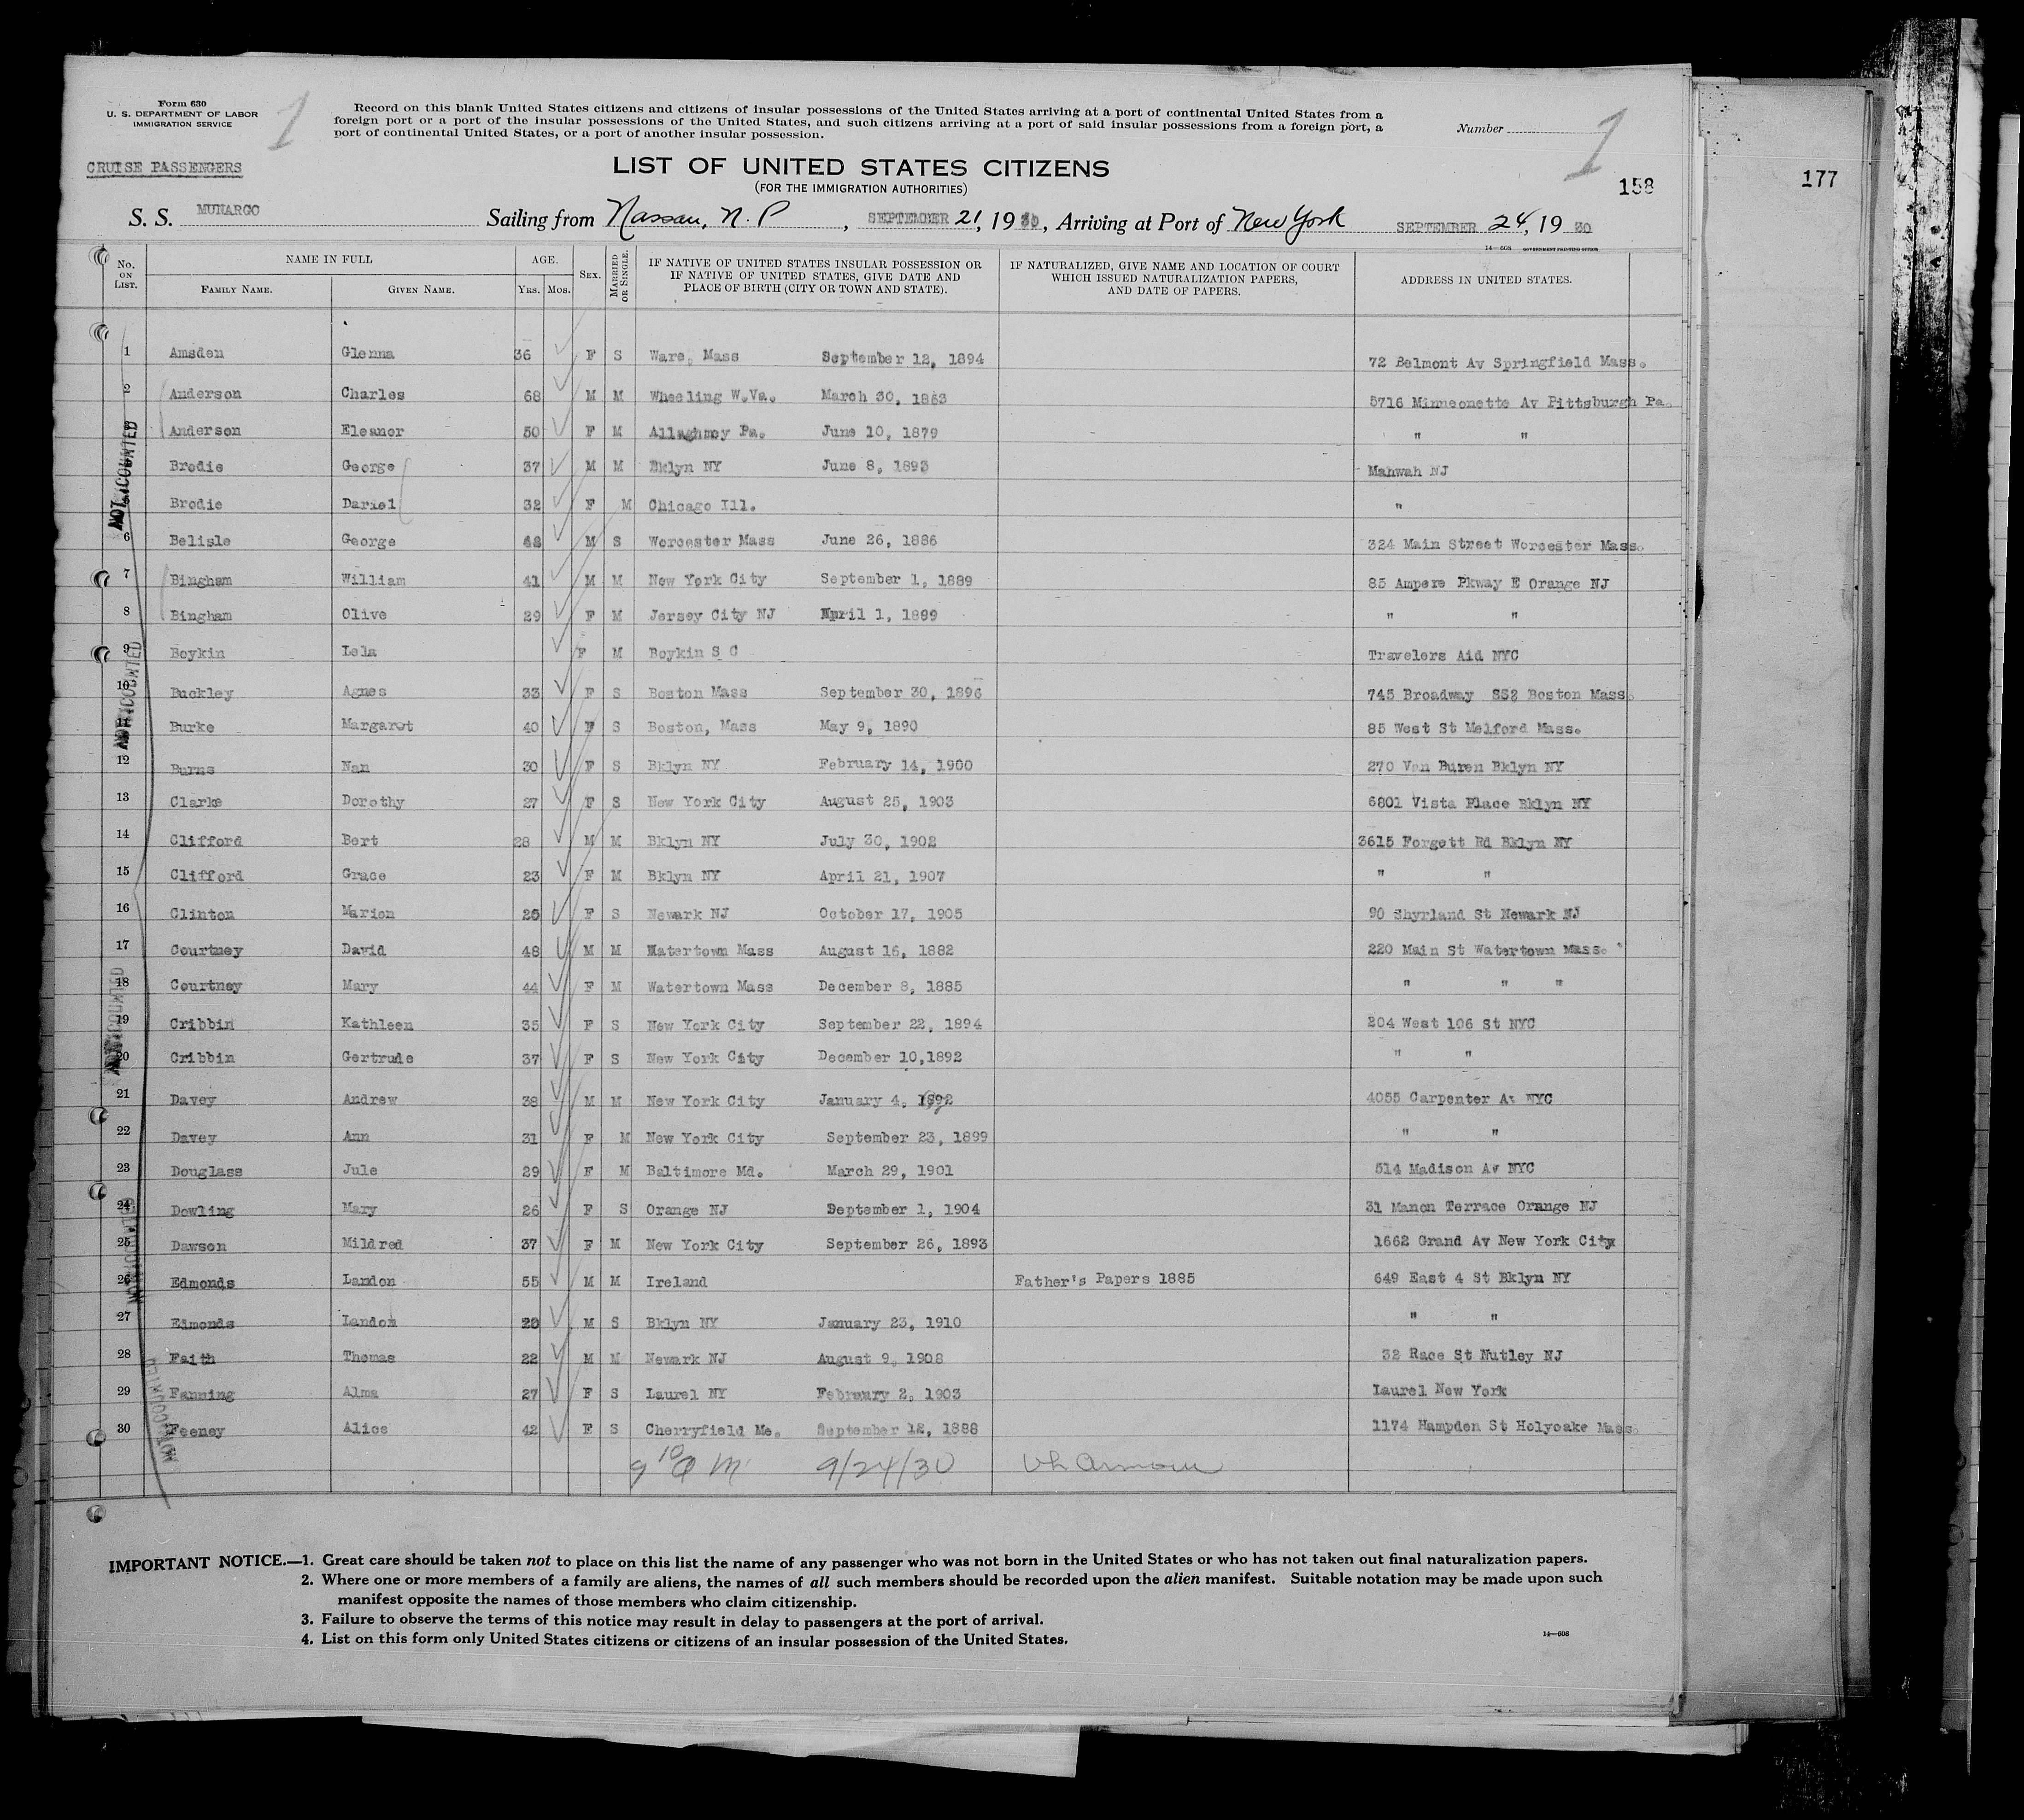 Form 630
U. S. DEPARTMENT OF LABOR
IMMIGRATION SERVICE
1
Record on this blank United States citizens and citizens of insular possessions of the United States arriving at a port of continental United States from a
foreign port or a port of the insular possessions of the United States, and such citizens arriving at a port of said insular possessions from a foreign port, a
port of continental United States, or a port of another insular possession.
Number
1
CRUISE PASSENGERS
LIST OF UNITED STATES CITIZENS
(FOR THE IMMIGRATION AUTHORITIES)
158
177
S. S. MUNARGO Sailing from Nassau, N. P , SEPTEMBER 21, 1930, Arriving at Port of New York SEPTEMBER 24, 19 30
14—608 GOVERNMENT PRINTING OFFICE
No. ON LIST. NAME IN FULL FAMILY NAME. GIVEN NAME. AGE. YRS. MOS. SEX. MARRIED OR SINGLE. IF NATIVE OF UNITED STATES INSULAR POSSESSION OR IF NATIVE OF UNITED STATES, GIVE DATE AND PLACE OF BIRTH (CITY OR TOWN AND STATE). IF NATURALIZED, GIVE NAME AND LOCATION OF COURT WHICH ISSUED NATURALIZATION PAPERS, AND DATE OF PAPERS. ADDRESS IN UNITED STATES.
1 Amsden Glenna 36 F S Ware, Mass September 12, 1894 72 Belmont Av Springfield Mass.
2 Anderson Charles 68 M M Wheeling W.Va. March 30, 1863 5716 Minneonette Av Pittsburgh Pa.
Anderson Eleanor 50 F M Allaghney Pa. June 10, 1879 " "
Brodie George 37 M M Bklyn NY June 8, 1893 Mahwah NJ
Brodie Dariel 32 F M Chicago Ill. "
6 Belisle George M S Worcester Mass June 26, 1886 324 Main Street Worcester Mass.
7 Bingham William 41 M M New York City September 1, 1889 85 Ampere Pkway E Orange NJ
8 Bingham Olive 29 F M Jersey City NJ April 1, 1899 " "
9 Boykin Lela F M Boykin S C Travelers Aid NYC
10 Buckley Agnes 33 F S Boston Mass September 30, 1896 745 Broadway S52 Boston Mass.
Burke Margaret 40 F S Boston, Mass May 9, 1890 85 West St Melford Mass.
12 Burns Nan 30 F S Bklyn NY February 14, 1900 270 Van Buren Bklyn NY
13 Clarke Dorothy 27 F S New York City August 25, 1903 6801 Vista Place Bklyn NY
14 Clifford Bert 28 M M Bklyn NY July 30, 1902 3615 Forgett Rd Bklyn NY
15 Clifford Grace 23 F M Bklyn NY April 21, 1907 " "
16 Clinton Marion 25 F S Newark NJ October 17, 1905 90 Shyrland St Newark NJ
17 Courtney David 48 M M Watertown Mass August 16, 1882 220 Main St Watertown Mass.
18 Courtney Mary 44 F M Watertown Mass December 8, 1885 " " "
19 Cribbin Kathleen 35 F S New York City September 22, 1894 204 West 106 St NYC
20 Cribbin Gertrude 37 F S New York City December 10,1892 " "
21 Davey Andrew 38 M M New York City January 4, 1892 4055 Carpenter Av NYC
22 Davey Ann 31 F M New York City September 23, 1899 " "
23 Douglass Jule 29 F M Baltimore Md. March 29, 1901 514 Madison Av NYC
24 Dowling Mary 26 F S Orange NJ September 1, 1904 31 Manon Terrace Orange NJ
25 Dawson Mildred 37 F M New York City September 26, 1893 1662 Grand Av New York City
26 Edmonds Landon 55 M M Ireland Father's Papers 1885 649 East 4 St Bklyn NY
27 Edmonds Landon 20 M S Bklyn NY January 23, 1910 " "
28 Faith Thomas 22 M M Newark NJ August 9, 1908 32 Race St Nutley NJ
29 Fanning Alma 27 F S Laurel NY February 2, 1903 Laurel New York
30 Feeney Alice 42 F S Cherryfield Me. September 12, 1888 1174 Hampden St Holyoake Mass.
9 10 a m 9/24/30
IMPORTANT NOTICE.—1. Great care should be taken not to place on this list the name of any passenger who was not born in the United States or who has not taken out final naturalization papers.
2. Where one or more members of a family are aliens, the names of all such members should be recorded upon the alien manifest. Suitable notation may be made upon such
manifest opposite the names of those members who claim citizenship.
3. Failure to observe the terms of this notice may result in delay to passengers at the port of arrival.
4. List on this form only United States citizens or citizens of an insular possession of the United States.
14—608